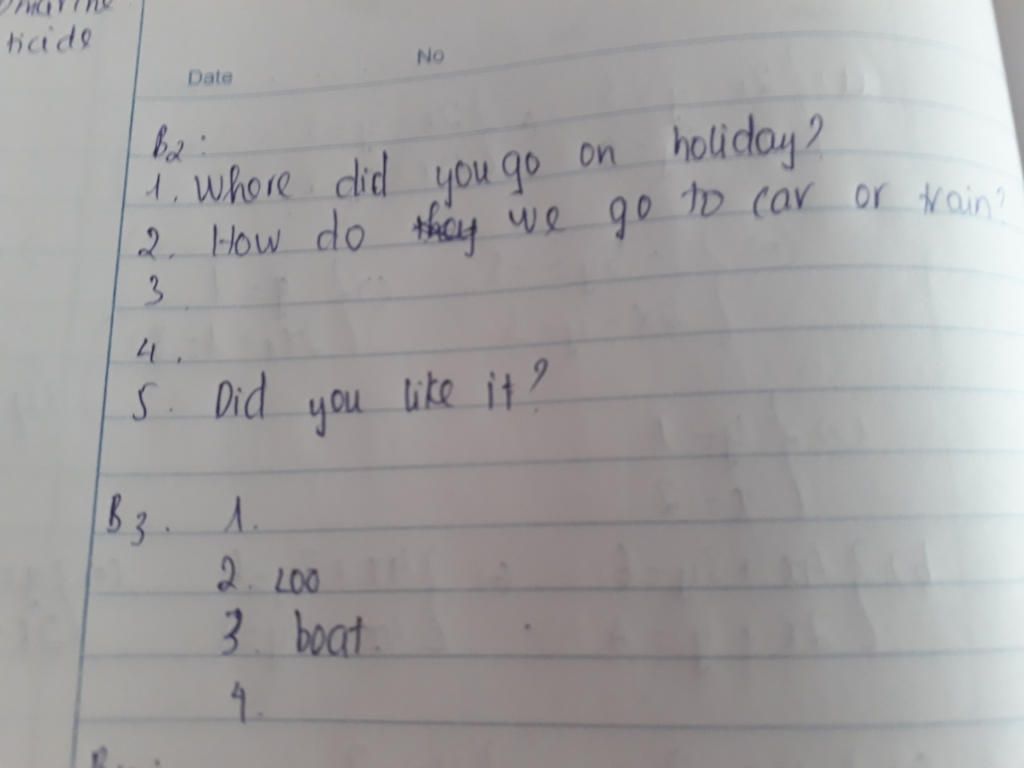 ticide
No
Date
B2:
1. Where did you go on holiday?
2. How do they we go to car or train?
3
4.
5. Did you like it?
B3. 1.
2. zoo
3. boat.
4.